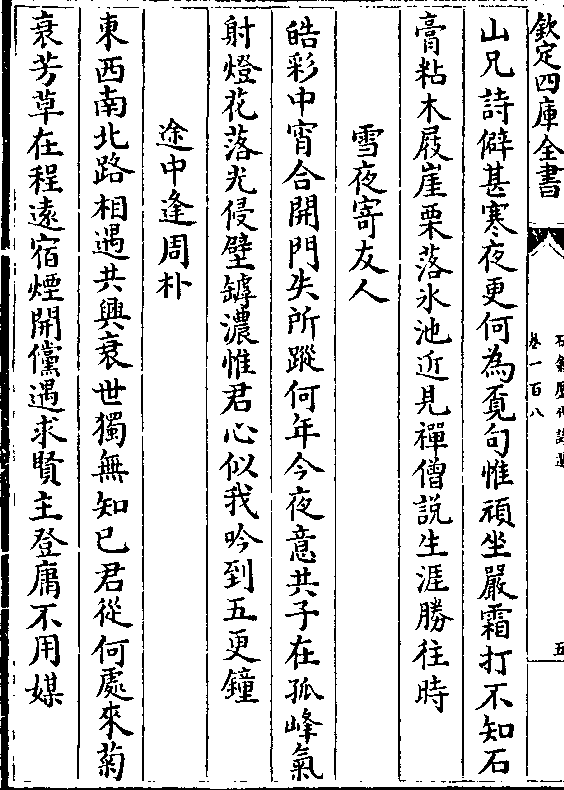 欽定四庫全書
卷一百八
五
山兄詩僻甚寒夜更何為覔句惟頑坐嚴霜打不知石
膏粘木屐崖栗落氷池近見禪僧説生涯勝往時
雪夜寄友人
皓彩中宵合開門失所蹤何年今夜意共子在孤峰氣
射燈花落光侵壁罅濃惟君心似我吟到五更鐘
途中逢周朴
東西南北路相遇共興衰世獨無知已君從何處來菊
衰芳草在程遠宿煙開儻遇求賢主登庸不用媒